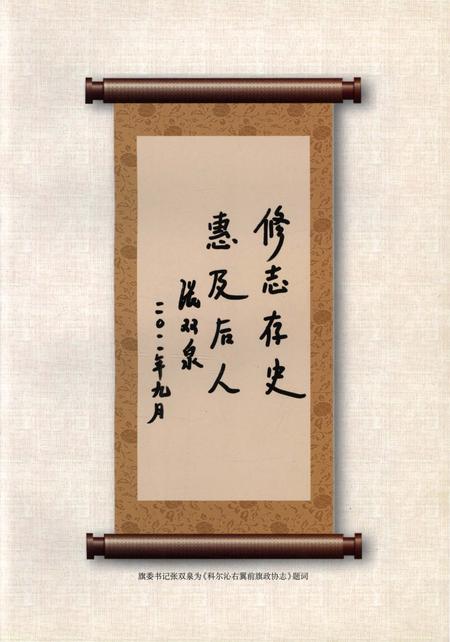 修志存史
惠及后人
张双泉
二〇一一年九月
旗委书记张双泉为《科尔沁右翼前旗政协志》题词